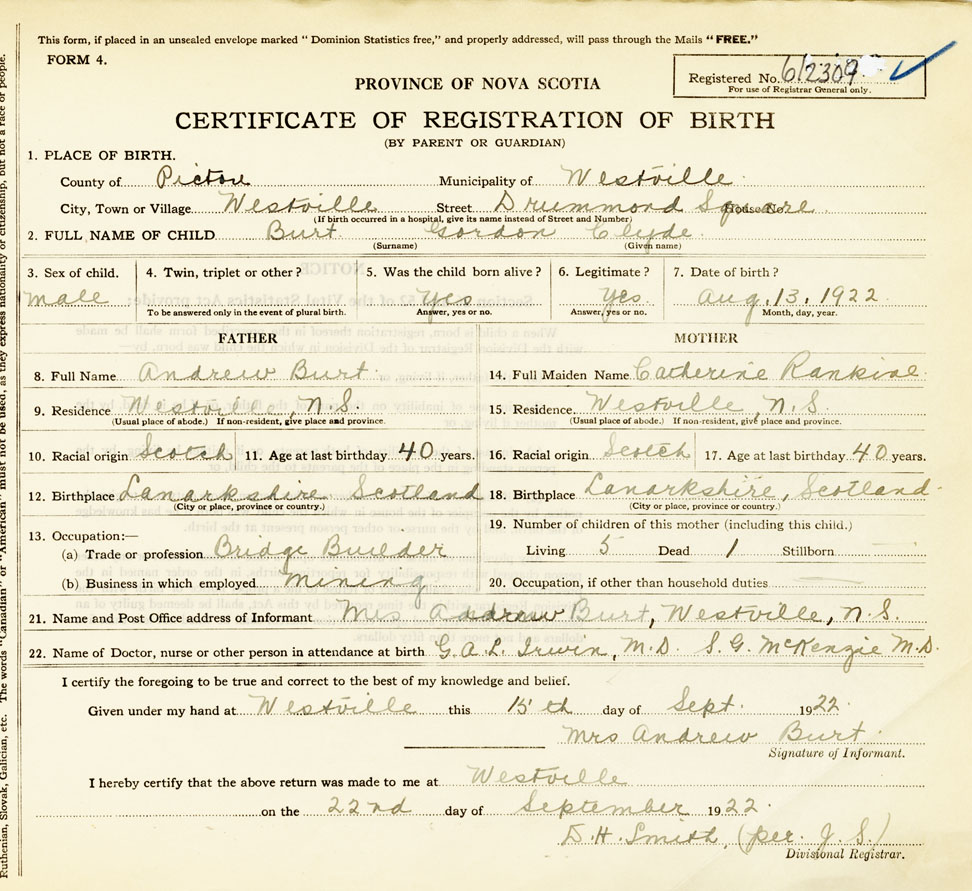 This form, if placed in an unsealed envelope marked "Dominion Statistics free," and properly addressed, will pass through the Mails "FREE."
FORM 4.
Registered No. 612309
For use of Registrar General only.
PROVINCE OF NOVA SCOTIA
CERTIFICATE OF REGISTRATION OF BIRTH
(BY PARENT OR GUARDIAN)
1. PLACE OF BIRTH.
County of Pictou Municipality of Westville
City, Town or Village Westville Street Drummond Square House No.
(If birth occurred in a hospital, give its name instead of Street and Number)
2. FULL NAME OF CHILD Burt Gordon Clyde
(Surname) (Given name)
3. Sex of child. 4. Twin, triplet or other? 5. Was the child born alive? 6. Legitimate? 7. Date of birth?
male Yes Yes. Aug. 13, 1922
To be answered only in the event of plural birth. Answer, yes or no. Answer, yes or no. Month, day, year.
FATHER MOTHER
8. Full Name Andrew Burt 14. Full Maiden Name Catherine Rankine
9. Residence Westville, N.S. 15. Residence Westville, N.S.
(Usual place of abode.) If non-resident, give place and province. (Usual place of abode.) If non-resident, give place and province.
10. Racial origin Scotch 11. Age at last birthday 40 years. 16. Racial origin Scotch 17. Age at last birthday 40 years.
12. Birthplace Lanarkshire Scotland 18. Birthplace Lanarkshire, Scotland
(City or place, province or country.) (City or place, province or country.)
13. Occupation:— 19. Number of children of this mother (including this child.)
(a) Trade or profession Bridge Builder Living 5 Dead 1 Stillborn
(b) Business in which employed mining 20. Occupation, if other than household duties
21. Name and Post Office address of Informant Mrs Andrew Burt, Westville, N.S.
22. Name of Doctor, nurse or other person in attendance at birth G.A.L. Irwin, M.D. S.G. McKenzie M.D.
I certify the foregoing to be true and correct to the best of my knowledge and belief.
Given under my hand at Westville this 15th day of Sept. 1922
Mrs Andrew Burt
Signature of Informant.
I hereby certify that the above return was made to me at Westville
on the 22nd day of September 1922
D.H. Smith, (per J.S.)
Divisional Registrar.
Ruthenian, Slovak, Galician, etc. The words "Canadian" or "American" must not be used, as they express nationality or citizenship, but not a race or people.